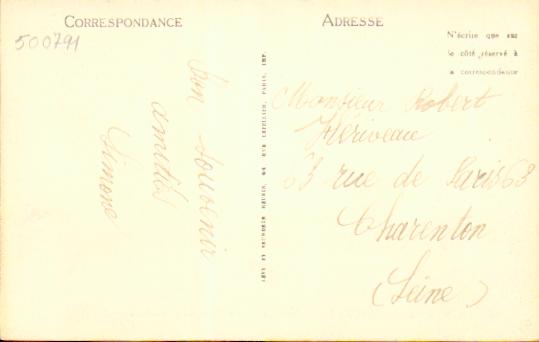 CORRESPONDANCE
500791
bon souvenir
amitiés
Simone
ADRESSE
N'écrire que sur
le côté réservé à
la correspondance
Monsieur Robert
Hériveau
63 rue de Paris 63
Charenton
(Seine)
PARIS, IMP.